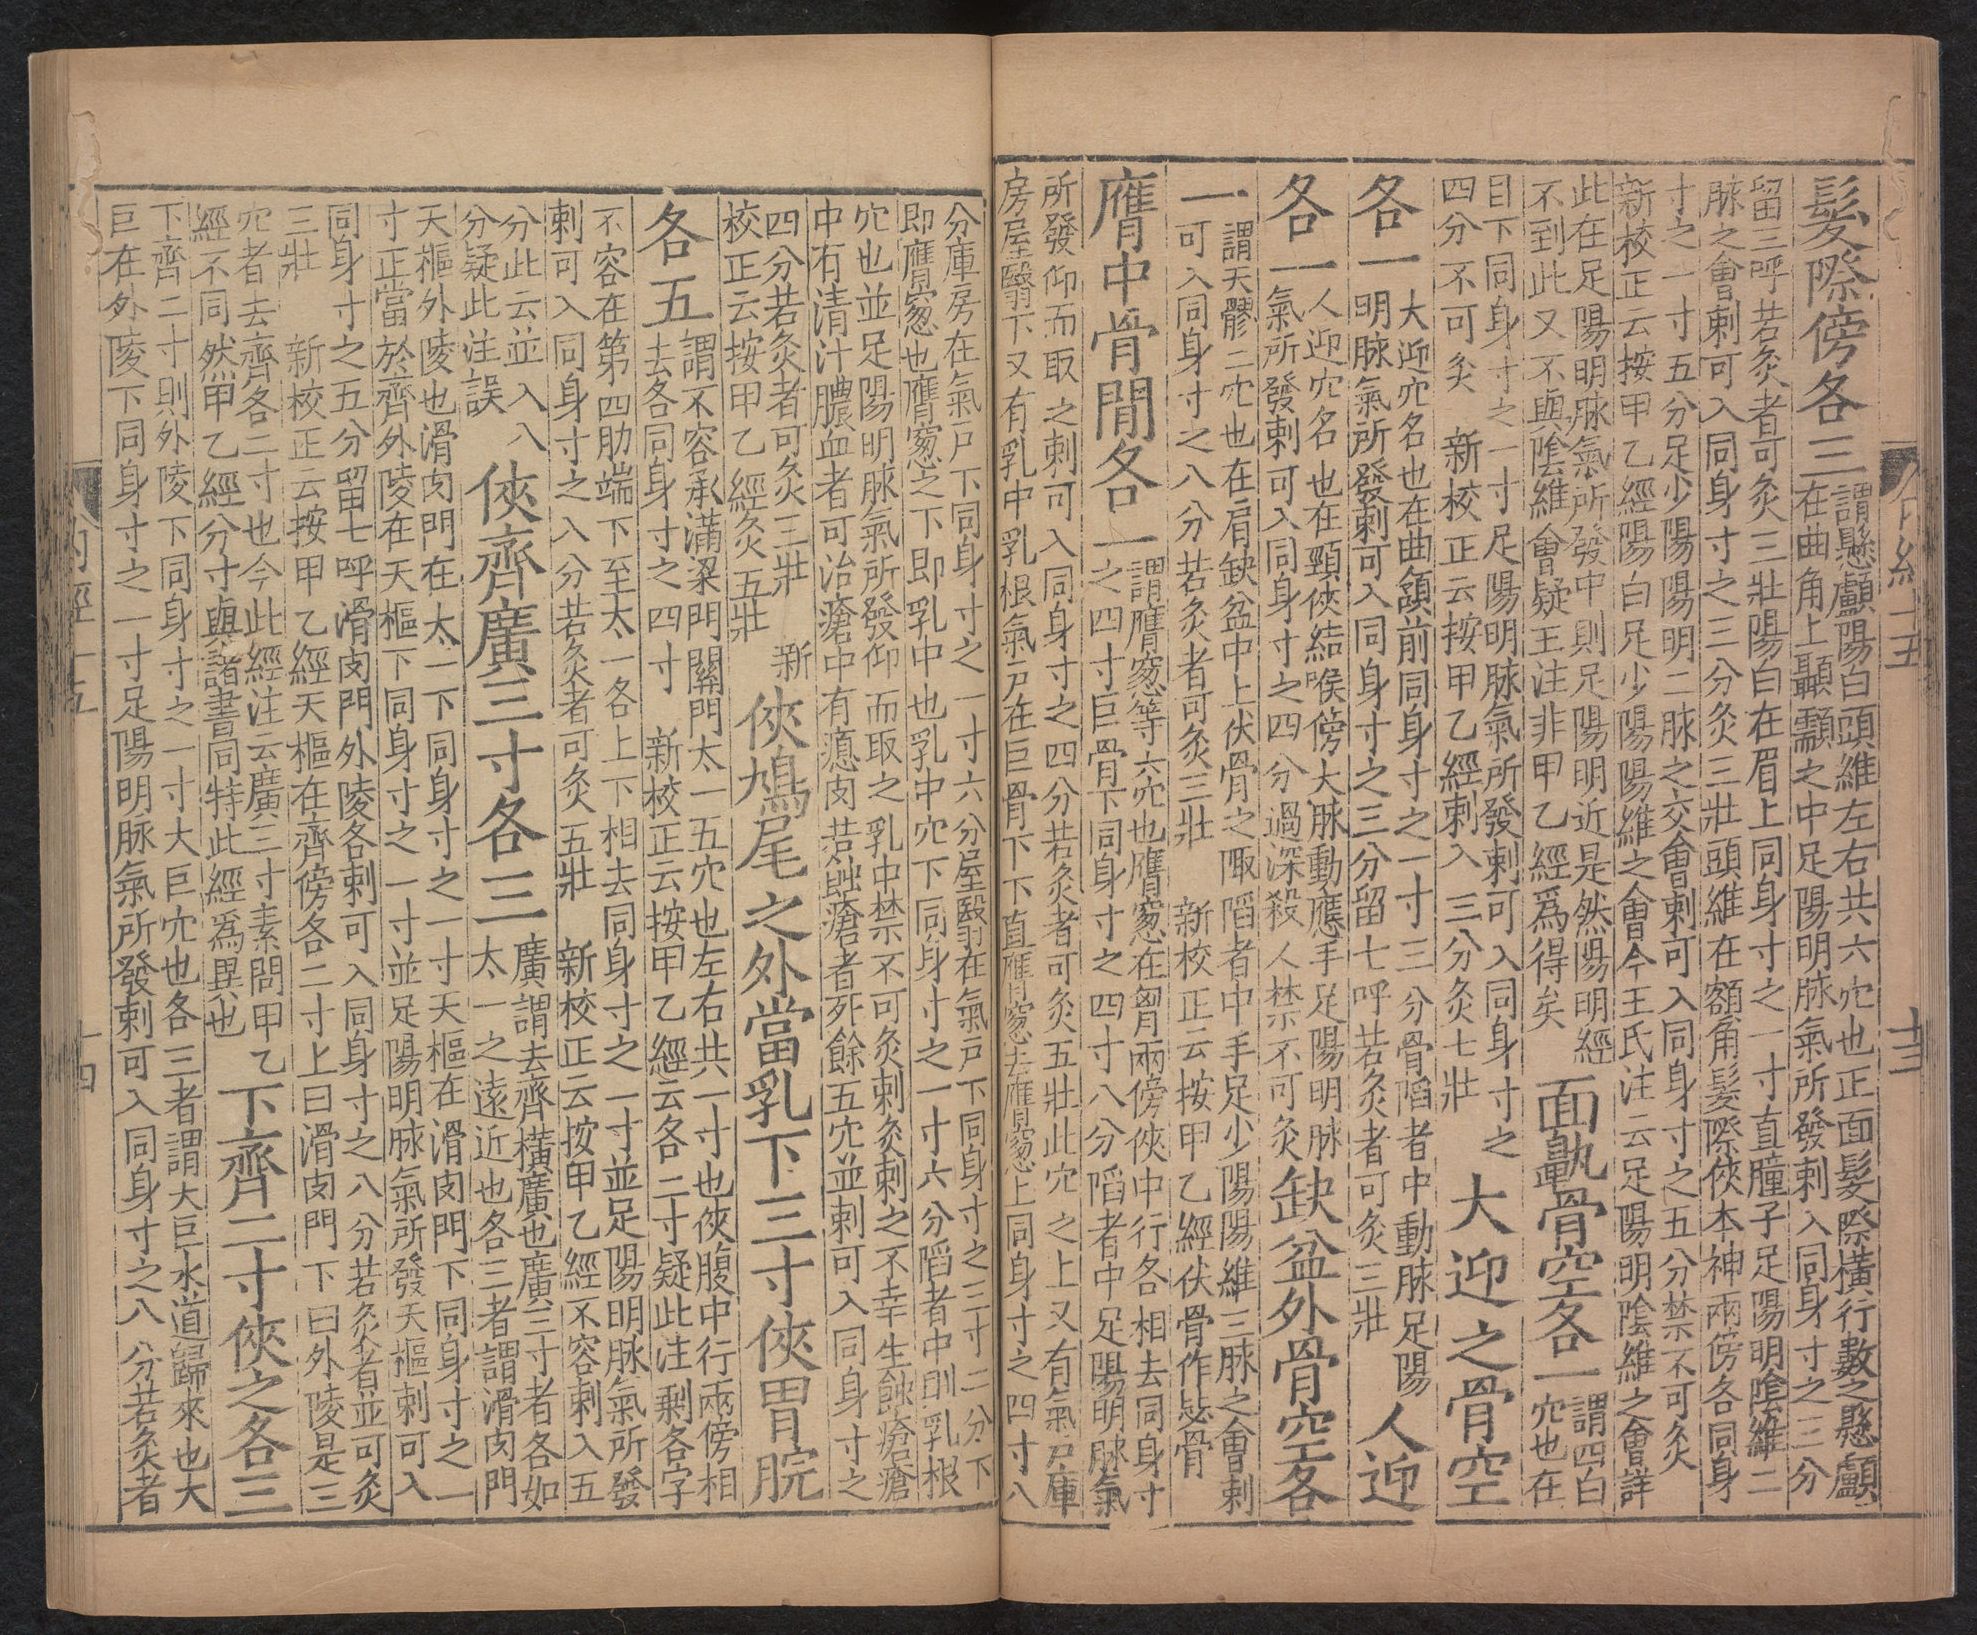 髮際傍各三
謂懸顱陽白頭維左右共六穴也正面髮際橫行數之懸顱
在曲角上顳顬之中足陽明脉氣所發刺入同身寸之三分
留三呼若灸者可灸三壯陽白在眉上同身寸之一寸直瞳子足陽明陰維二
脉之會刺可入同身寸之三分灸三壯頭維在額角髮際俠本神兩傍各同身
寸之一寸五分足少陽陽明二脉之交會刺可入同身寸之五分禁不可灸
新校正云按甲乙經陽白足少陽陽維之會今王氏注云足陽明陰維之會詳
此在足陽明脉氣所發中則足陽明近是然陽明經
不到此又不與陰維會疑王注非甲乙經爲得矣
面鼽骨空各一
謂四白
穴也在
目下同身寸之一寸足陽明脉氣所發刺可入同身寸之
四分不可灸 新校正云按甲乙經刺入三分灸七壯
大迎之骨空
各一
大迎穴名也在曲頷前同身寸之一寸三分骨陷者中動脉足陽
明脉氣所發刺可入同身寸之三分留七呼若灸者可灸三壯
人迎
各一
人迎穴名也在頸俠結喉傍大脉動應手足陽明脉
氣所發刺可入同身寸之四分過深殺人禁不可灸
缺盆外骨空各
一
謂天髎二穴也在肩缺盆中上伏骨之陬陷者中手足少陽陽維三脉之會刺
可入同身寸之八分若灸者可灸三壯 新校正云按甲乙經伏骨作毖骨
膺中骨間各一
謂膺窻等六穴也膺窻在胷兩傍俠中行各相去同身寸
之四寸巨骨下同身寸之四寸八分陷者中足陽明脉氣
所發仰而取之刺可入同身寸之四分若灸者可灸五壯此穴之上又有氣戶庫
房屋翳下又有乳中乳根氣戶在巨骨下下直膺窻去膺窻上同身寸之四寸八
内經十五 十三
分庫房在氣戶下同身寸之一寸六分屋翳在氣戶下同身寸之三寸二分下
即膺窻也膺窻之下即乳中也乳中穴下同身寸之一寸六分陷者中則乳根
穴也並足陽明脉氣所發仰而取之乳中禁不可灸刺灸刺之不幸生蝕瘡瘡
中有清汁膿血者可治瘡中有瘜肉若蝕瘡者死餘五穴並刺可入同身寸之
四分若灸者可灸三壯 新
校正云按甲乙經灸五壯
俠鳩尾之外當乳下三寸俠胃脘
各五
謂不容承滿梁門關門太一五穴也左右共一寸也俠腹中行兩傍相
去各同身寸之四寸 新校正云按甲乙經云各二寸疑此注剩各字
不容在第四肋端下至太一各上下相去同身寸之一寸並足陽明脉氣所發
刺可入同身寸之八分若灸者可灸五壯 新校正云按甲乙經不容刺入五
分此云並入八
分疑此注誤
俠齊廣三寸各三
廣謂去齊橫廣也廣三寸者各如
太一之遠近也各三者謂滑肉門
天樞外陵也滑肉門在太一下同身寸之一寸天樞在滑肉門下同身寸之一
寸正當於齊外陵在天樞下同身寸之一寸並足陽明脉氣所發天樞刺可入
同身寸之五分留七呼滑肉門外陵各刺可入同身寸之八分若灸者並可灸
三壯 新校正云按甲乙經天樞在齊傍各二寸上曰滑肉門下曰外陵是三
穴者去齊各二寸也今此經注云廣三寸素問甲乙
經不同然甲乙經分寸與諸書同特此經爲異也
下齊二寸俠之各三
下齊二寸則外陵下同身寸之一寸大巨穴也各三者謂大巨水道歸來也大
巨在外陵下同身寸之一寸足陽明脉氣所發刺可入同身寸之八分若灸者
内經十五 十四